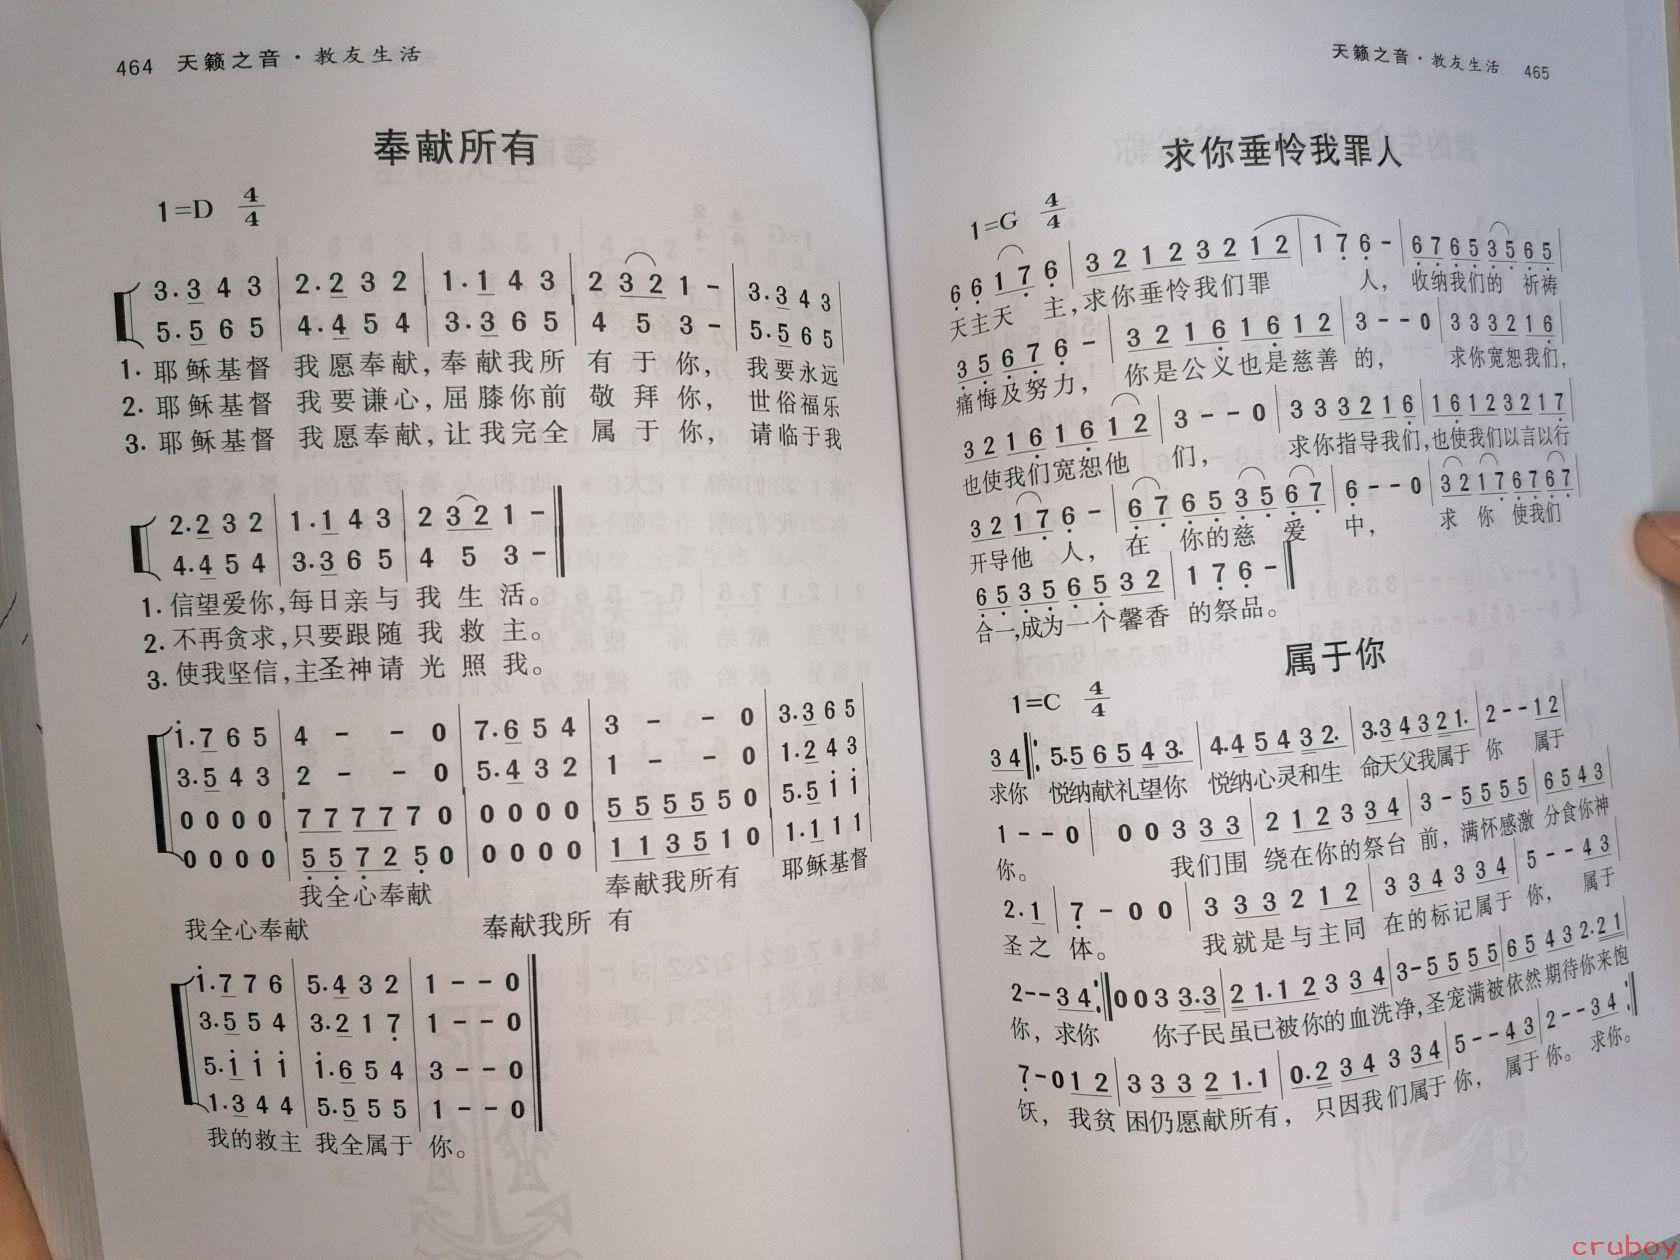 464 天籁之音·教友生活
奉献所有
1=D 4/4
3.3 4 3 | 2.2 3 2 | 1.1 4 3 | 2 3 2 1 - | 3.3 4 3 |
5.5 6 5 | 4.4 5 4 | 3.3 6 5 | 4 5 3 - | 5.5 6 5 |
1. 耶稣基督 我愿奉献,奉献我所 有于你, 我要永远
2. 耶稣基督 我要谦心,屈膝你前 敬拜你, 世俗福乐
3. 耶稣基督 我愿奉献,让我完全 属于你, 请临于我
2.2 3 2 | 1.1 4 3 | 2 3 2 1 - ‖
4.4 5 4 | 3.3 6 5 | 4 5 3 - ‖
1. 信望爱你,每日亲与 我生活。
2. 不再贪求,只要跟随 我救主。
3. 使我坚信,主圣神请 光照我。
i.7 6 5 | 4 - - 0 | 7.6 5 4 | 3 - - 0 | 3.3 6 5 |
3.5 4 3 | 2 - - 0 | 5.4 3 2 | 1 - - 0 | 1.2 4 3 |
0 0 0 0 | 7 7 7 7 7 0 | 0 0 0 0 | 5 5 5 5 5 0 | 5.5 i i |
0 0 0 0 | 5 5 7 2 5 0 | 0 0 0 0 | 1 1 3 5 1 0 | 1.1 1 1 |
我全心奉献 奉献我所有 耶稣基督
我全心奉献 奉献我所 有
i.7 7 6 | 5.4 3 2 | 1 - - 0 ‖
3.5 5 4 | 3.2 1 7 | 1 - - 0 ‖
5.i i i | i.6 5 4 | 3 - - 0 ‖
1.3 4 4 | 5.5 5 5 | 1 - - 0 ‖
我的救主 我全属于 你。
天籁之音·教友生活 465
求你垂怜我罪人
1=G 4/4
6 6 1 7 6 | 3 2 1 2 3 2 1 2 | 1 7 6 - | 6 7 6 5 3 5 6 5 |
天主天 主,求你垂怜我们罪 人, 收纳我们的 祈祷
3 5 6 7 6 - | 3 2 1 6 1 6 1 2 | 3 - - 0 | 3 3 3 2 1 6 |
痛悔及努力, 你是公义也是慈善 的, 求你宽恕我们,
3 2 1 6 1 6 1 2 | 3 - - 0 | 3 3 3 2 1 6 | 1 6 1 2 3 2 1 7 |
也使我们宽恕他 们, 求你指导我们,也使我们以言以行
3 2 1 7 6 - | 6 7 6 5 3 5 6 7 | 6 - - 0 | 3 2 1 7 6 7 6 7 |
开导他 人, 在 你的慈 爱 中, 求 你 使我们
6 5 3 5 6 5 3 2 | 1 7 6 - ‖
合一,成为一个馨香 的祭品。
属于你
1=C 4/4
3 4 ‖: 5.5 6 5 4 3. | 4.4 5 4 3 2. | 3.3 4 3 2 1. | 2 - - 1 2 |
求你 悦纳献礼望你 悦纳心灵和生 命天父我属于 你 属于
1 - - 0 | 0 0 3 3 3 | 2 1 2 3 3 4 | 3 - 5 5 5 5 | 6 5 4 3 |
你。 我们围 绕在你的祭台 前,满怀感激 分食你神
2.1 | 7 - 0 0 | 3 3 3 3 2 1 2 | 3 3 4 3 3 4 | 5 - - 4 3 |
圣之 体。 我就是与主同 在的标记属于 你, 属于
2 - - 3 4 :‖ 0 0 3 3.3 | 2 1.1 2 3 3 4 | 3 - 5 5 5 5 | 6 5 4 3 2.2 1 |
你, 求你 你子民虽已被你的血洗净,圣宠满被依然期待你来饱
7 - 0 1 2 | 3 3 3 2 1.1 | 0.2 3 4 3 3 4 | 5 - - 4 3 | 2 - - 3 4 :‖
饫, 我贫 困仍愿献所有, 只因我们属于 你, 属于你。 求你。
cruboy